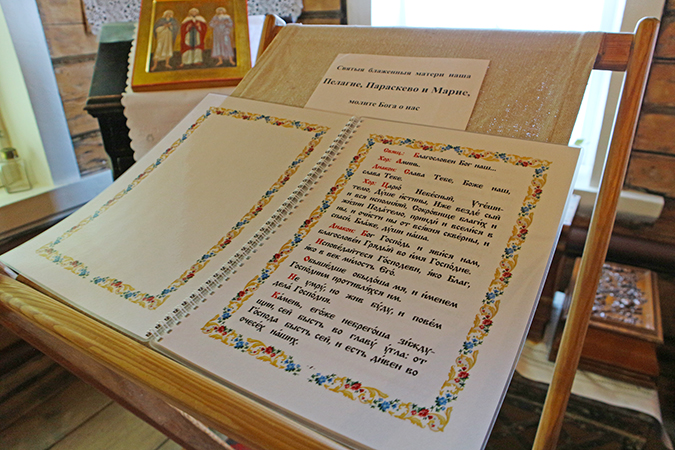 Святыя блаженныя матери наша
Пелагие, Параскево и Марие,
молите Бога о нас
Свящ.: Благословен Бог наш...
Хор: Аминь.
Диакон: Слава Тебе, Боже наш,
слава Тебе.
Хор: Царю́ Небе́сный, Утѣши-
телю Ду́ше и́стины, Иже вездѣ́ сый
и вся исполня́яй, Сокро́вище благи́х и
жи́зни Пода́телю, прииди́ и всели́ся в
ны, и очи́сти ны от вся́кия скве́рны, и
спаси́, Бла́же, ду́ши на́ша.
Диакон: Бог Госпо́дь, и яви́ся нам,
благослове́н Гряды́й во и́мя Госпо́дне.
Исповѣ́дайтеся Го́сподеви, я́ко благ,
я́ко в вѣк ми́лость Его́.
Обыше́дше обыдо́ша мя, и и́менем
Госпо́дним противля́хся им.
Не умру́, но жив бу́ду, и повѣ́м
дѣла́ Госпо́дня.
Ка́мень, его́же небрего́ша зи́жду-
щии, сей бысть во главу́ у́гла: от
Го́спода бысть сей, и есть ди́вен во
очесѣ́х на́ших.